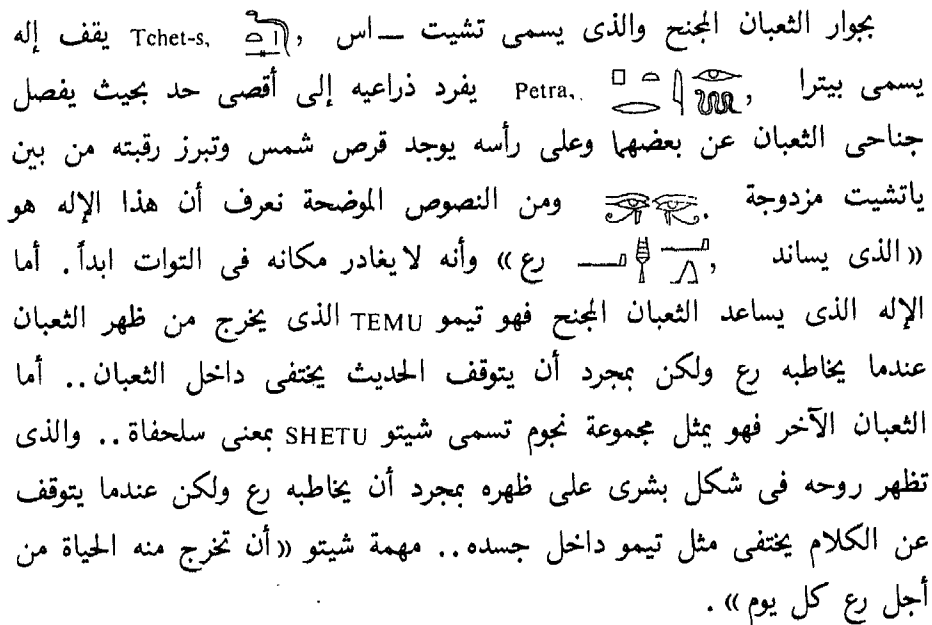 بجوار الثعبان المجنح والذى يسمى تشيت ــ اس , Tchet-s, يقف إله
يسمى بيترا , Petra, يفرد ذراعيه إلى أقصى حد بحيث يفصل
جناحى الثعبان عن بعضهما وعلى رأسه يوجد قرص شمس وتبرز رقبته من بين
ياتشيت مزدوجة . ومن النصوص الموضحة نعرف أن هذا الإله هو
«الذى يساند , رع» وأنه لا يغادر مكانه فى التوات ابداً . أما
الإله الذى يساعد الثعبان المجنح فهو تيمو TEMU الذى يخرج من ظهر الثعبان
عندما يخاطبه رع ولكن بمجرد أن يتوقف الحديث يختفى داخل الثعبان .. أما
الثعبان الآخر فهو يمثل مجموعة نجوم تسمى شيتو SHETU بمعنى سلحفاة .. والذى
تظهر روحه فى شكل بشرى على ظهره بمجرد أن يخاطبه رع ولكن عندما يتوقف
عن الكلام يختفى مثل تيمو داخل جسده .. مهمة شيتو «أن تخرج منه الحياة من
أجل رع كل يوم» .